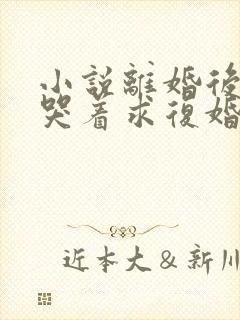 小説離婚後
哭着求復婚
近本大＆新川